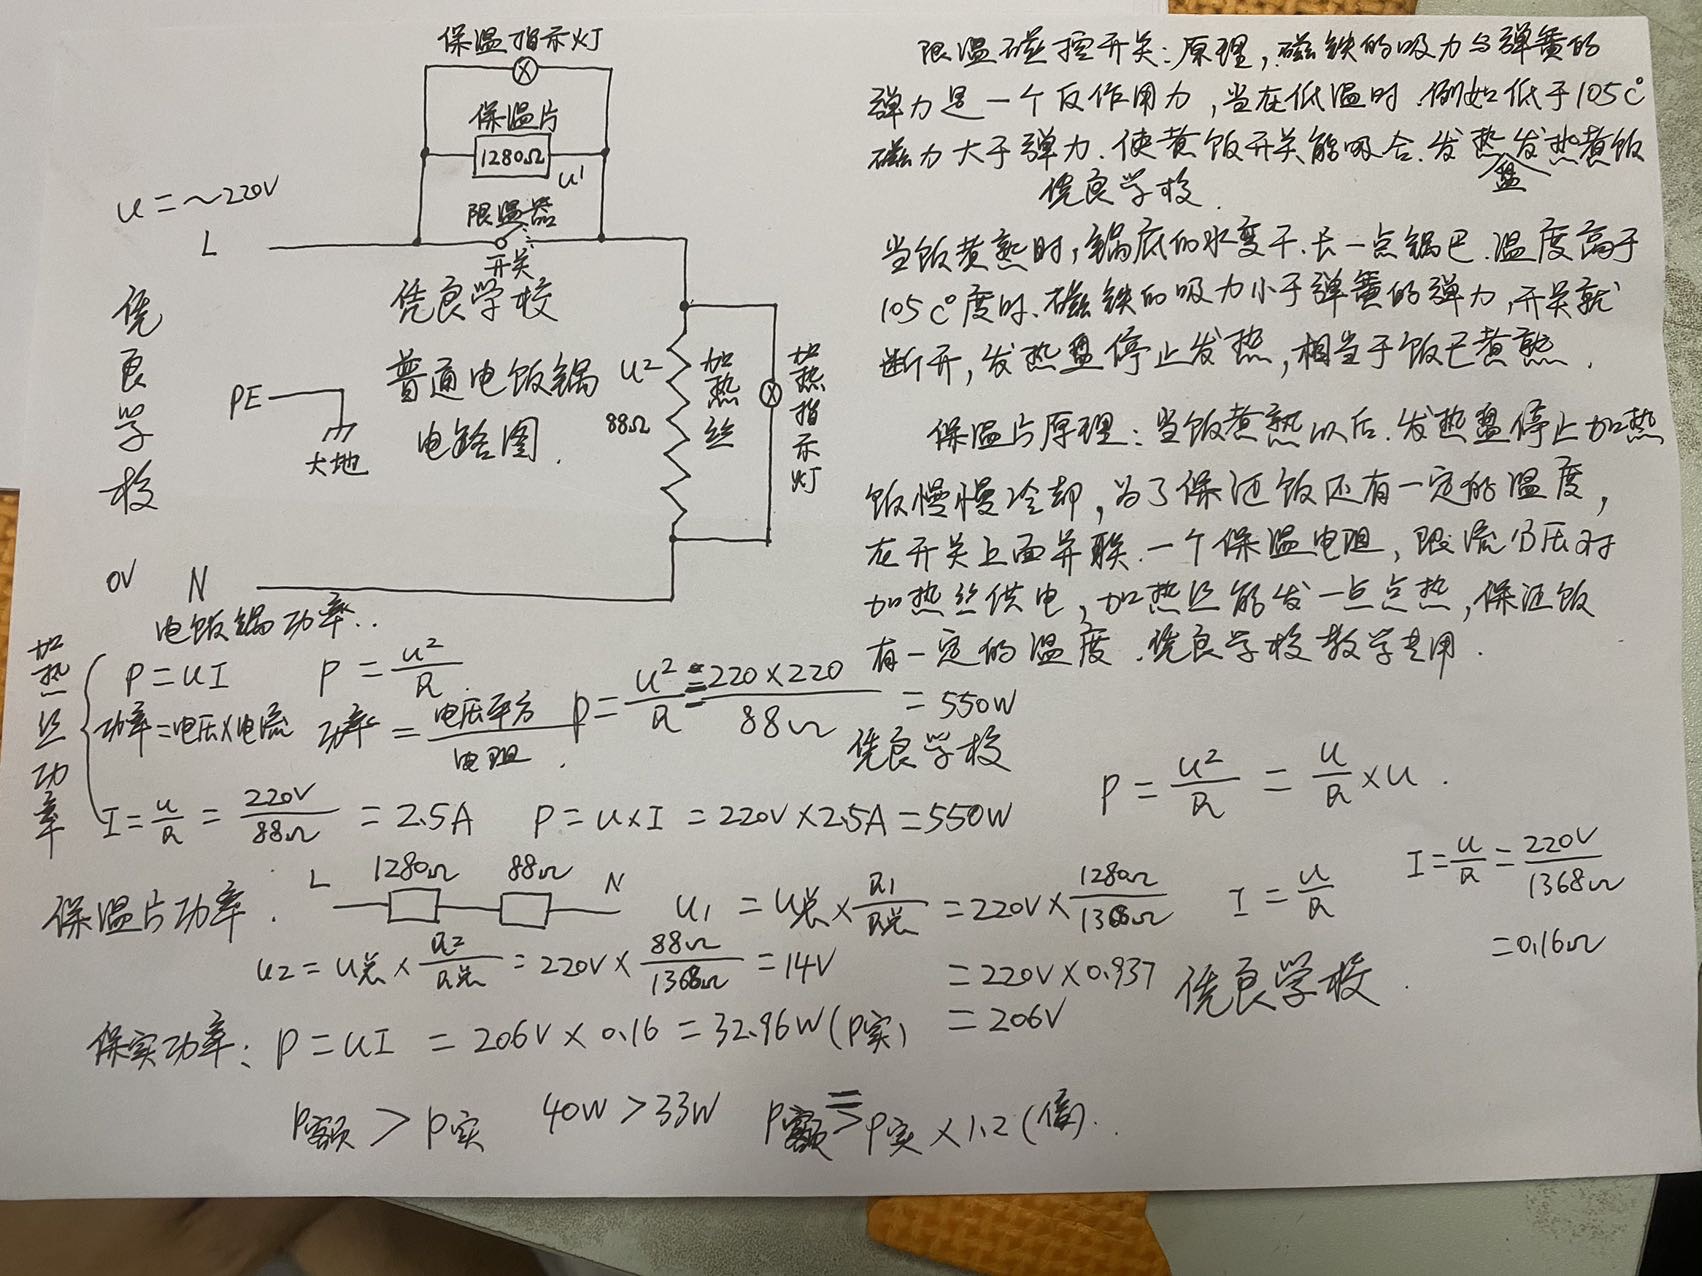 保温指示灯
保温片
1280Ω
u1
限温器
开关
u=～220V
L
凭良学校
凭良学校
普通电饭锅
电路图.
u2
88Ω
加热丝
加热指示灯
PE
大地
0V N
限温磁控开关:原理,磁铁的吸力与弹簧的
弹力是一个反作用力,当在低温时.例如低于105c°
磁力大于弹力.使煮饭开关能吸合.发热盘发热煮饭
凭良学校.
当饭煮熟时,锅底的水变干.长一点锅巴.温度高于
105c°度时.磁铁的吸力小于弹簧的弹力,开关就
断开,发热盘停止发热,相当于饭已煮熟.
保温片原理:当饭煮熟以后.发热盘停止加热
饭慢慢冷却,为了保证饭还有一定的温度,
在开关上面并联.一个保温电阻,限流分压对
加热丝供电,加热丝能发一点点热,保证饭
有一定的温度.凭良学校教学专用.
电饭锅功率..
加热丝功率
P=uI P=u²/R.
功率=电压×电流 功率=电压平方/电阻.
P=u²/R=220×220/88Ω=550W
凭良学校
I=u/R=220V/88Ω=2.5A P=u×I=220V×2.5A=550W
P=u²/R=u/R×u.
保温片功率.
L 1280Ω 88Ω N
u1=u总×R1/R总=220V×1280Ω/1368Ω
=220V×0.937
=206V
I=u/R
I=u/R=220V/1368Ω
=0.16Ω
u2=u总×R2/R总=220V×88Ω/1368Ω=14V
凭良学校.
保实功率:P=uI=206V×0.16=32.96W(P实)
P额>P实 40W>33W P额=>P实×1.2(倍)..